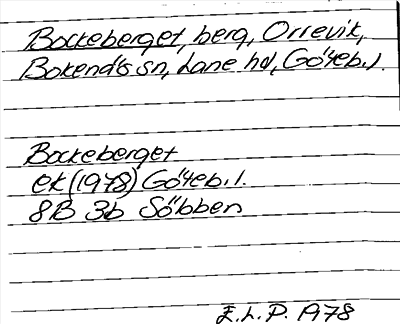 Bockeberget, berg, Orrevik,
Bokenäs sn, Lane hd, Göteb. l.
Bockeberget
ek (1978) Göteb. l.
8B 3b Säbben
E.L.P. 1978